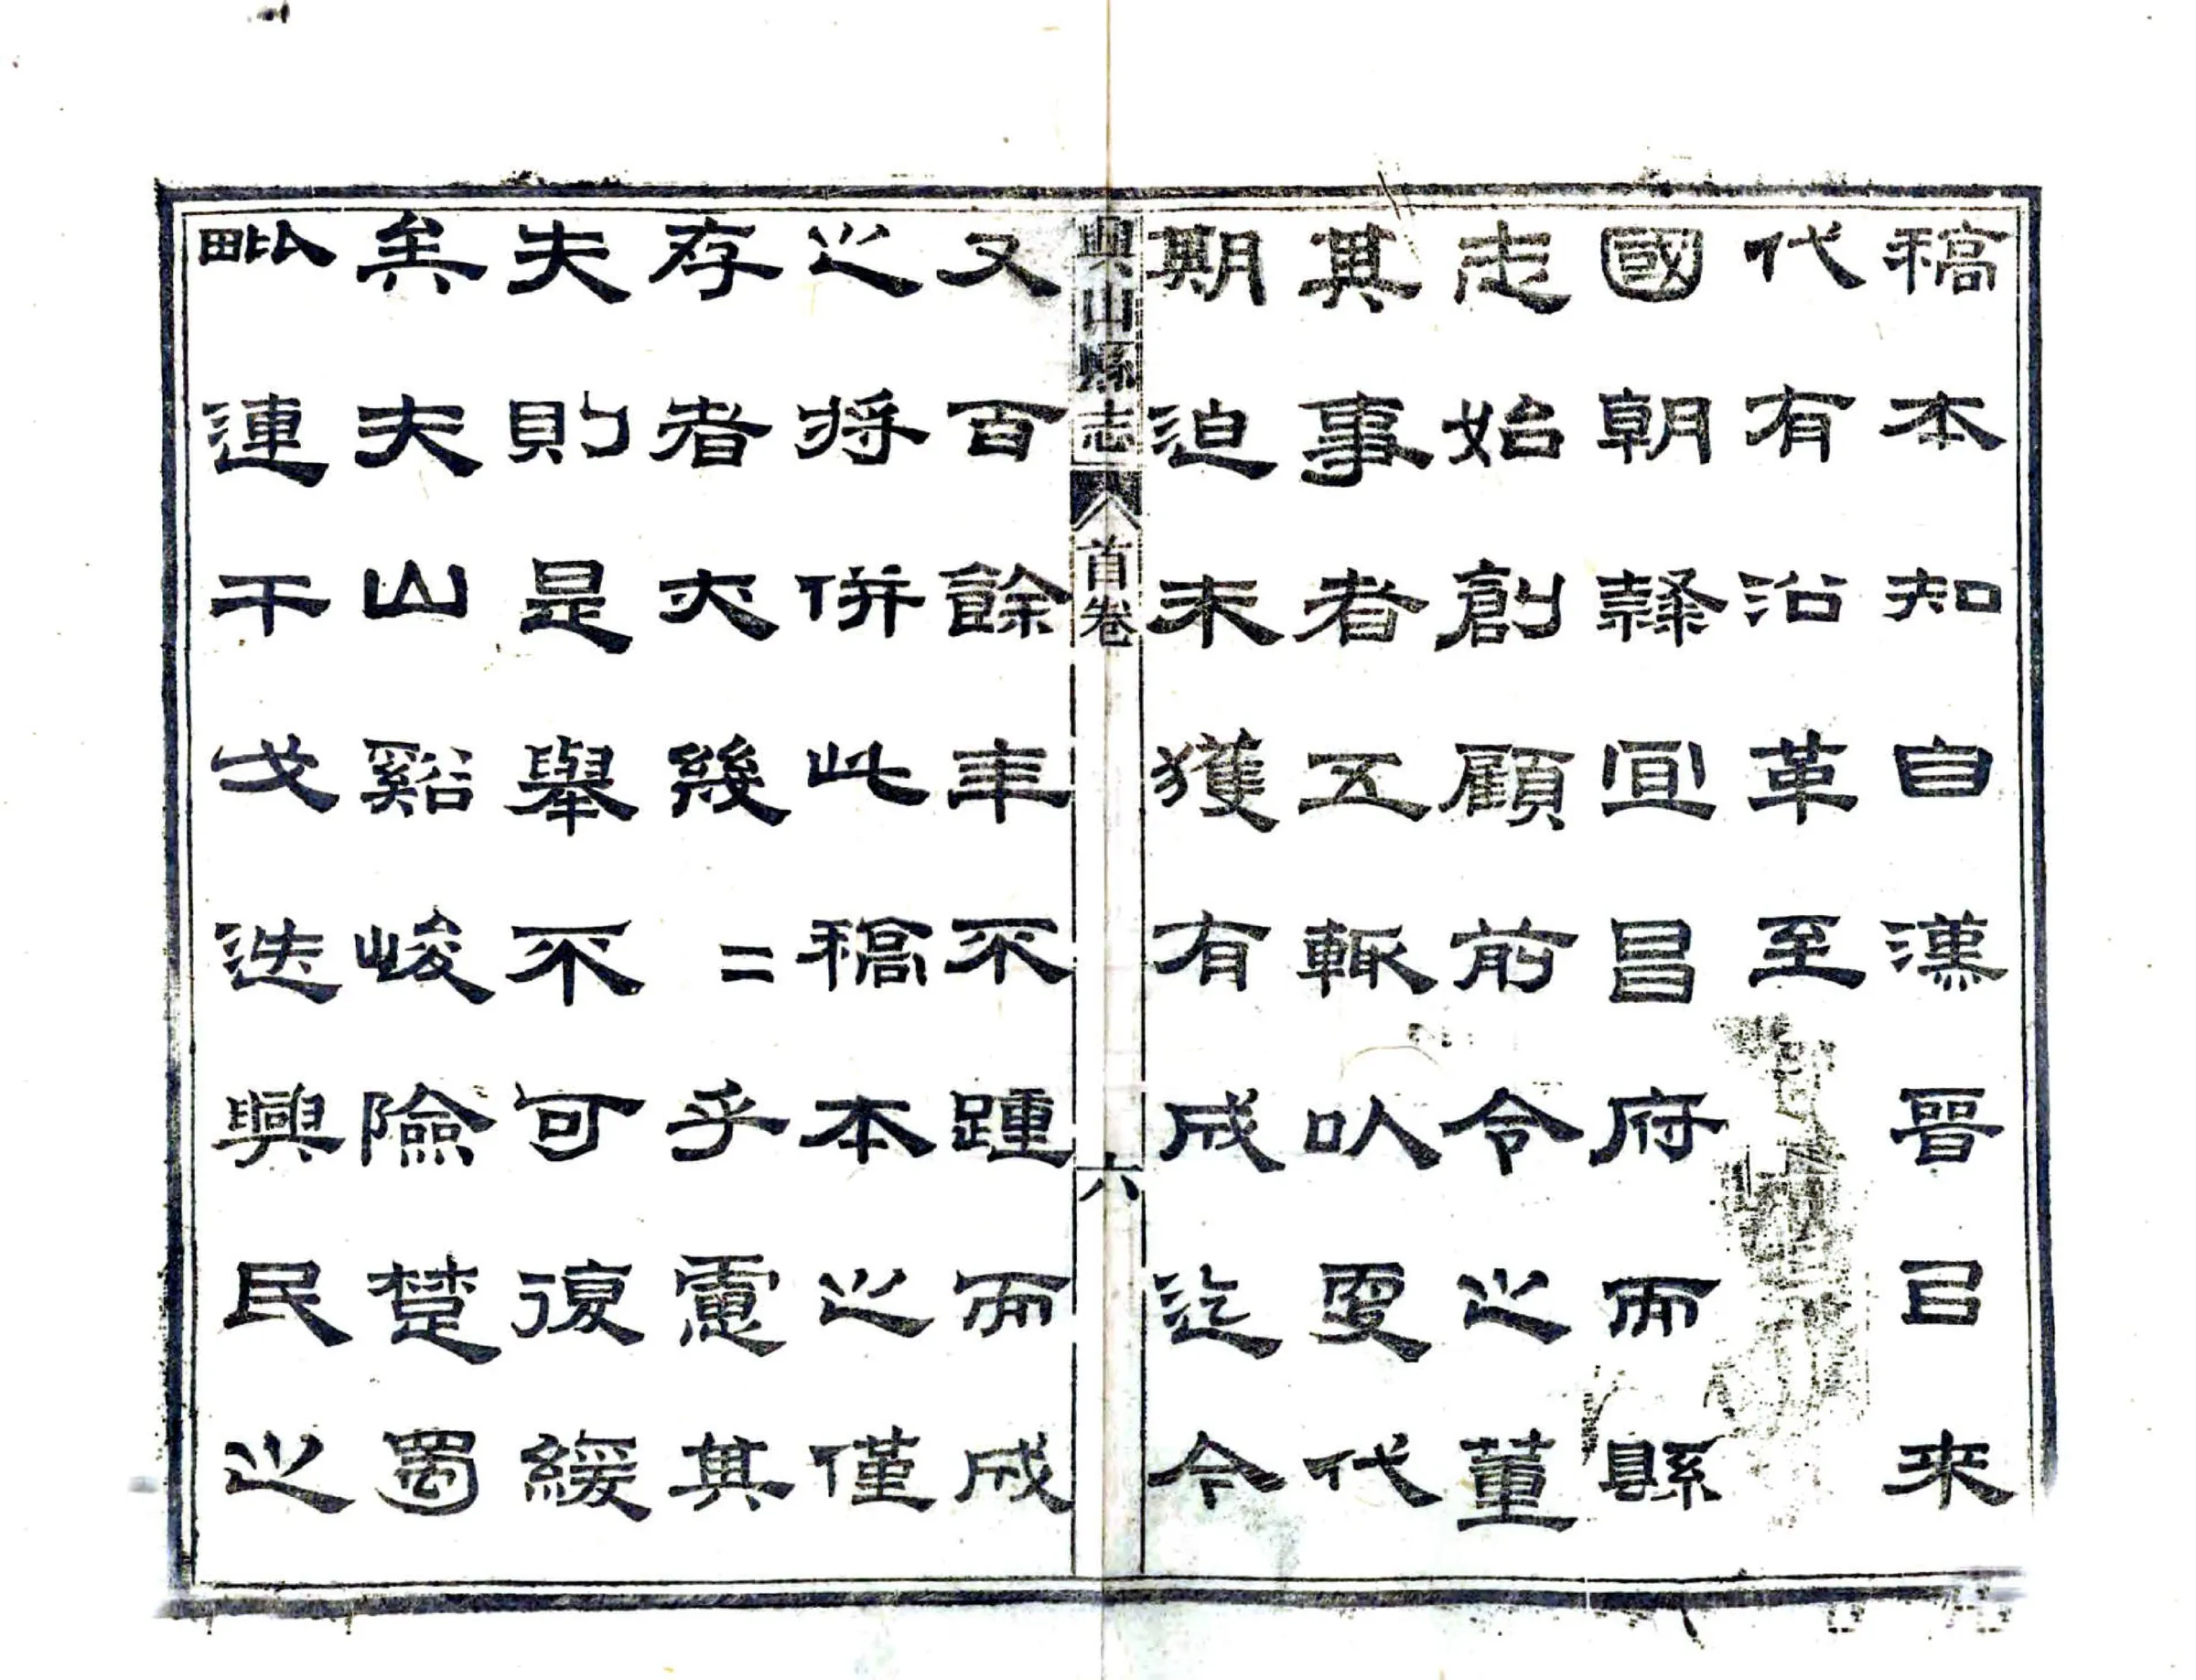 稿本知自漢晉㠯來
代有沿革至
國朝隸宜昌府而縣
志始創顧前令之董
其事者五輒以更代
期迫未獲有成迄今
興山縣志 首卷 六
又百餘年不踵而成
之將併此稿本之僅
存者亦幾二乎慮其
失則是舉不可復緩
矣夫山谿峻險楚蜀
毗連干戈迭興民之